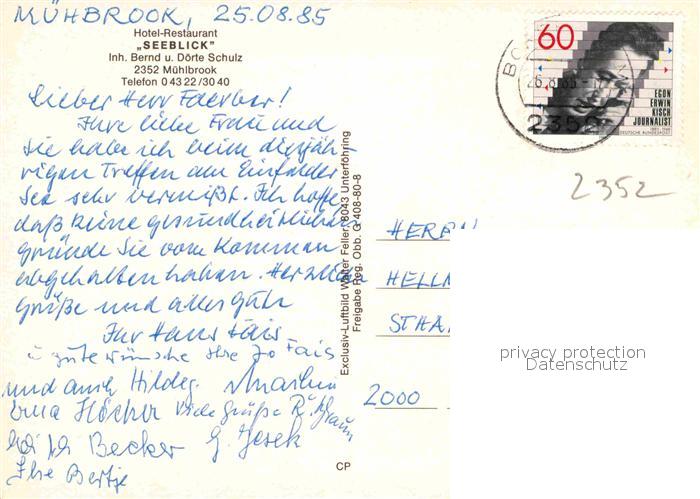 MÜHBROOK, 25.08.85
Hotel-Restaurant
„SEEBLICK"
Inh. Bernd u. Dörte Schulz
2352 Mühlbrook
Telefon 0 43 22/30 40
Lieber Herr Faerber!
Ihre liebe Frau und
Sie habe ich beim diesjäh-
rigen Treffen am Einfelder
See sehr vermißt. Ich hoffe
daß keine gesundheitlichen
Gründe Sie vom Kommen
abgehalten haben. Herzliche
Grüße und alles Gute
Ihr Hans
u. gute wünsche Ihre
und auch Hildeg.
Höcker viele Grüße
Becker G. Jesek
Ihre Bertje
Exclusiv-Luftbild Walter Feller, 8043 Unterföhring
Freigabe Reg. Obb. G 408-80-8
CP
60
EGON
ERWIN
KISCH
JOURNALIST
1885-1948
DEUTSCHE BUNDESPOST
2352
2352
HERR
HELLM
STHA
2000
privacy protection
Datenschutz